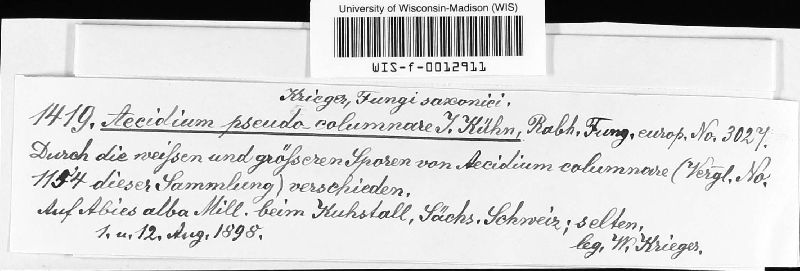 University of Wisconsin-Madison (WIS)
WIS-f-0012911
Krieger, Fungi saxonici.
1419. Aecidium pseudo-columnare J. Kühn, Rabh. Fung. europ. No. 3027.
Durch die weißen und größeren Sporen von Aecidium columnare (Vergl. No.
1154 dieser Sammlung) verschieden.
Auf Abies alba Mill. beim Kuhstall, Sächs. Schweiz; selten.
1. u. 12. Aug. 1898.
leg. W. Krieger.